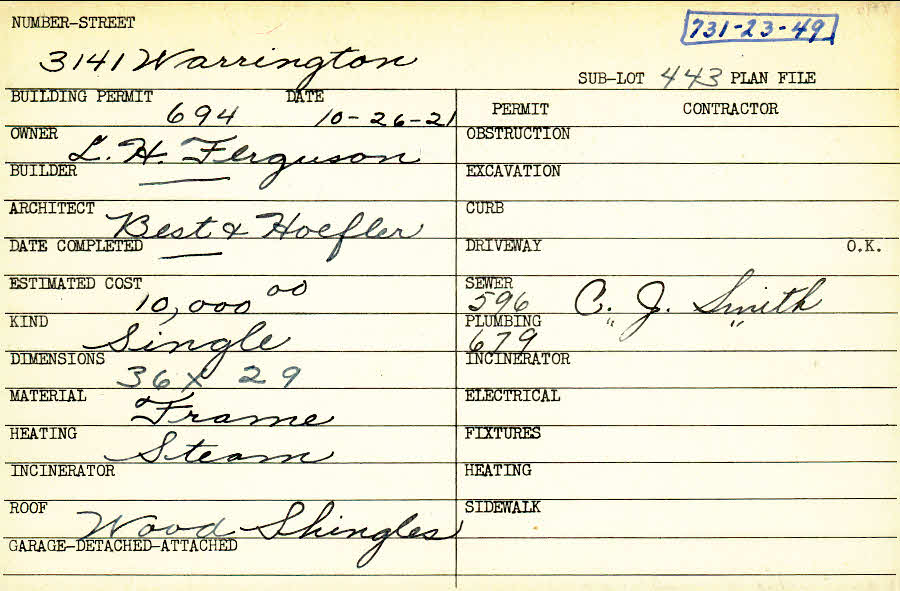 NUMBER-STREET
731-23-49
3141 Warrington
SUB-LOT 443 PLAN FILE
BUILDING PERMIT 694 DATE 10-26-21
PERMIT CONTRACTOR
OWNER L. H. Ferguson
OBSTRUCTION
BUILDER —
EXCAVATION
ARCHITECT Best & Hoefler
CURB
DATE COMPLETED —
DRIVEWAY O.K.
ESTIMATED COST 10,000 00
SEWER 596 C. J. Smith
KIND Single
PLUMBING 679 " "
DIMENSIONS 36 x 29
INCINERATOR
MATERIAL Frame
ELECTRICAL
HEATING Steam
FIXTURES
INCINERATOR
HEATING
ROOF Wood Shingles
SIDEWALK
GARAGE-DETACHED-ATTACHED